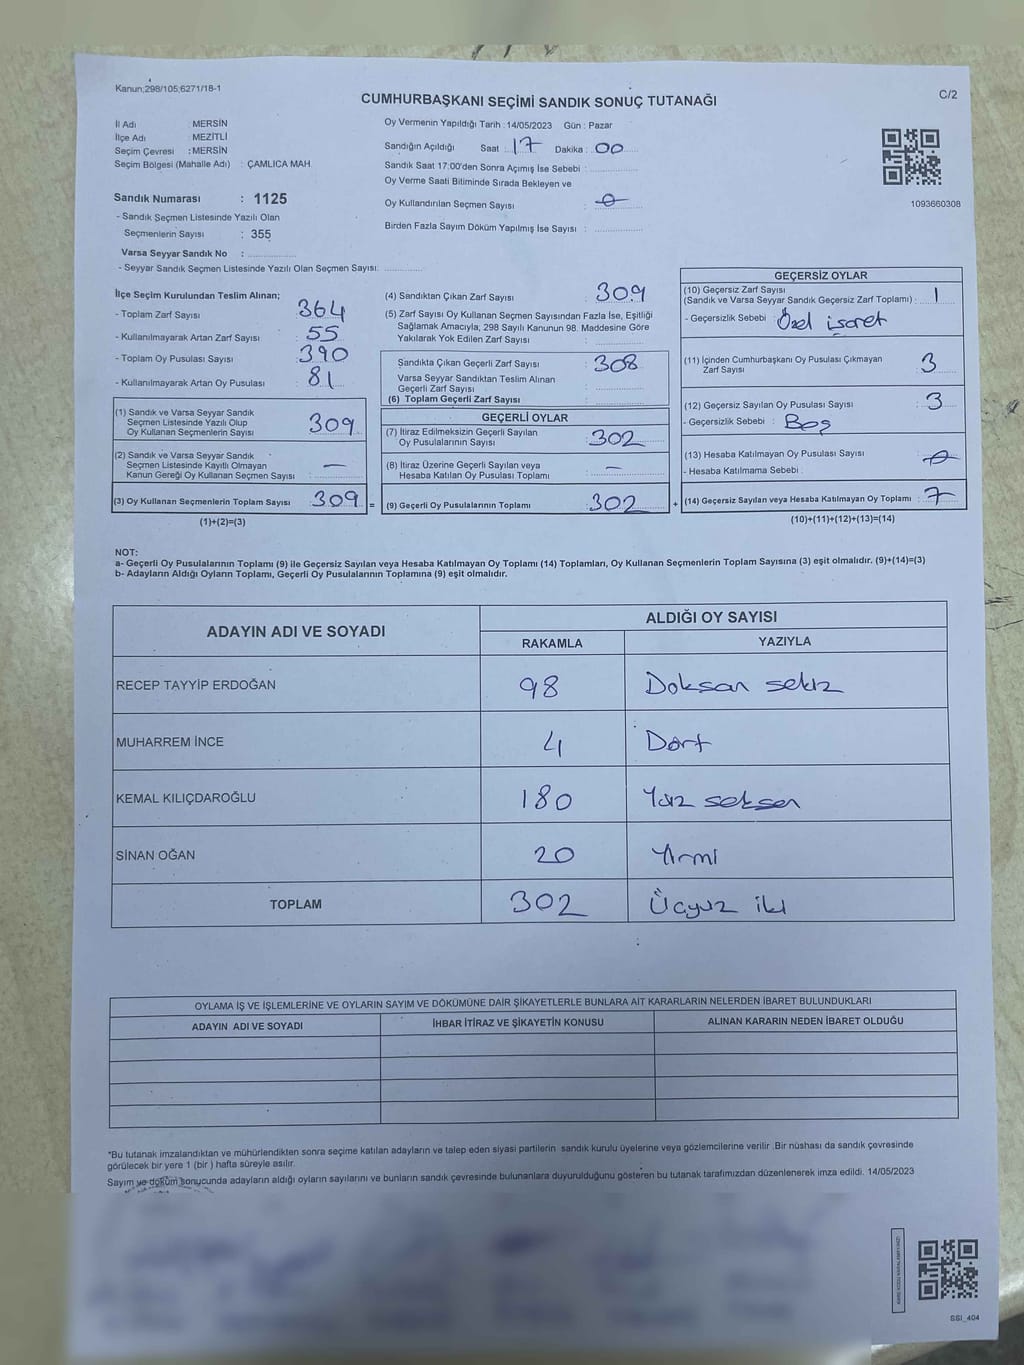 Kanun;298/105;6271/18-1
C/2
CUMHURBAŞKANI SEÇİMİ SANDIK SONUÇ TUTANAĞI
İl Adı : MERSİN
İlçe Adı : MEZİTLİ
Seçim Çevresi : MERSİN
Seçim Bölgesi (Mahalle Adı) : ÇAMLICA MAH.
Sandık Numarası : 1125
- Sandık Seçmen Listesinde Yazılı Olan
Seçmenlerin Sayısı : 355
Varsa Seyyar Sandık No :
- Seyyar Sandık Seçmen Listesinde Yazılı Olan Seçmen Sayısı:
Oy Vermenin Yapıldığı Tarih : 14/05/2023 Gün : Pazar
Sandığın Açıldığı Saat 17 Dakika : 00
Sandık Saat 17:00'den Sonra Açımış İse Sebebi :
Oy Verme Saati Bitiminde Sırada Bekleyen ve
Oy Kullandırılan Seçmen Sayısı : 0
Birden Fazla Sayım Döküm Yapılmış İse Sayısı :
1093660308
İlçe Seçim Kurulundan Teslim Alınan;
- Toplam Zarf Sayısı : 364
- Kullanılmayarak Artan Zarf Sayısı : 55
- Toplam Oy Pusulası Sayısı : 390
- Kullanılmayarak Artan Oy Pusulası : 81
(1) Sandık ve Varsa Seyyar Sandık
Seçmen Listesinde Yazılı Olup
Oy Kullanan Seçmenlerin Sayısı : 309
(2) Sandık ve Varsa Seyyar Sandık
Seçmen Listesinde Kayıtlı Olmayan
Kanun Gereği Oy Kullanan Seçmen Sayısı : —
(3) Oy Kullanan Seçmenlerin Toplam Sayısı : 309 =
(1)+(2)=(3)
(4) Sandıktan Çıkan Zarf Sayısı : 309
(5) Zarf Sayısı Oy Kullanan Seçmen Sayısından Fazla İse, Eşitliği
Sağlamak Amacıyla, 298 Sayılı Kanunun 98. Maddesine Göre
Yakılarak Yok Edilen Zarf Sayısı :
Sandıkta Çıkan Geçerli Zarf Sayısı : 308
Varsa Seyyar Sandıktan Teslim Alınan
Geçerli Zarf Sayısı :
(6) Toplam Geçerli Zarf Sayısı :
GEÇERLİ OYLAR
(7) İtiraz Edilmeksizin Geçerli Sayılan
Oy Pusulalarının Sayısı : 302
(8) İtiraz Üzerine Geçerli Sayılan veya
Hesaba Katılan Oy Pusulası Toplamı : —
(9) Geçerli Oy Pusulalarının Toplamı : 302 +
GEÇERSİZ OYLAR
(10) Geçersiz Zarf Sayısı
(Sandık ve Varsa Seyyar Sandık Geçersiz Zarf Toplamı) : 1
- Geçersizlik Sebebi : Özel işaret
(11) İçinden Cumhurbaşkanı Oy Pusulası Çıkmayan
Zarf Sayısı : 3
(12) Geçersiz Sayılan Oy Pusulası Sayısı : 3
- Geçersizlik Sebebi : Boş
(13) Hesaba Katılmayan Oy Pusulası Sayısı : 0
- Hesaba Katılmama Sebebi :
(14) Geçersiz Sayılan veya Hesaba Katılmayan Oy Toplamı : 7
(10)+(11)+(12)+(13)=(14)
NOT:
a- Geçerli Oy Pusulalarının Toplamı (9) ile Geçersiz Sayılan veya Hesaba Katılmayan Oy Toplamı (14) Toplamları, Oy Kullanan Seçmenlerin Toplam Sayısına (3) eşit olmalıdır. (9)+(14)=(3)
b- Adayların Aldığı Oyların Toplamı, Geçerli Oy Pusulalarının Toplamına (9) eşit olmalıdır.
ADAYIN ADI VE SOYADI ALDIĞI OY SAYISI
RAKAMLA YAZIYLA
RECEP TAYYİP ERDOĞAN 98 Doksan sekiz
MUHARREM İNCE 4 Dört
KEMAL KILIÇDAROĞLU 180 Yüz seksen
SİNAN OĞAN 20 Yirmi
TOPLAM 302 Üçyüz iki
OYLAMA İŞ VE İŞLEMLERİNE VE OYLARIN SAYIM VE DÖKÜMÜNE DAİR ŞİKAYETLERLE BUNLARA AİT KARARLARIN NELERDEN İBARET BULUNDUKLARI
ADAYIN ADI VE SOYADI İHBAR İTİRAZ VE ŞİKAYETİN KONUSU ALINAN KARARIN NEDEN İBARET OLDUĞU
*Bu tutanak imzalandıktan ve mühürlendikten sonra seçime katılan adayların ve talep eden siyasi partilerin sandık kurulu üyelerine veya gözlemcilerine verilir .Bir nüshası da sandık çevresinde
görülecek bir yere 1 (bir ) hafta süreyle asılır.
Sayım ve döküm sonucunda adayların aldığı oyların sayılarını ve bunların sandık çevresinde bulunanlara duyurulduğunu gösteren bu tutanak tarafımızdan düzenlenerek imza edildi. 14/05/2023
SSI_404